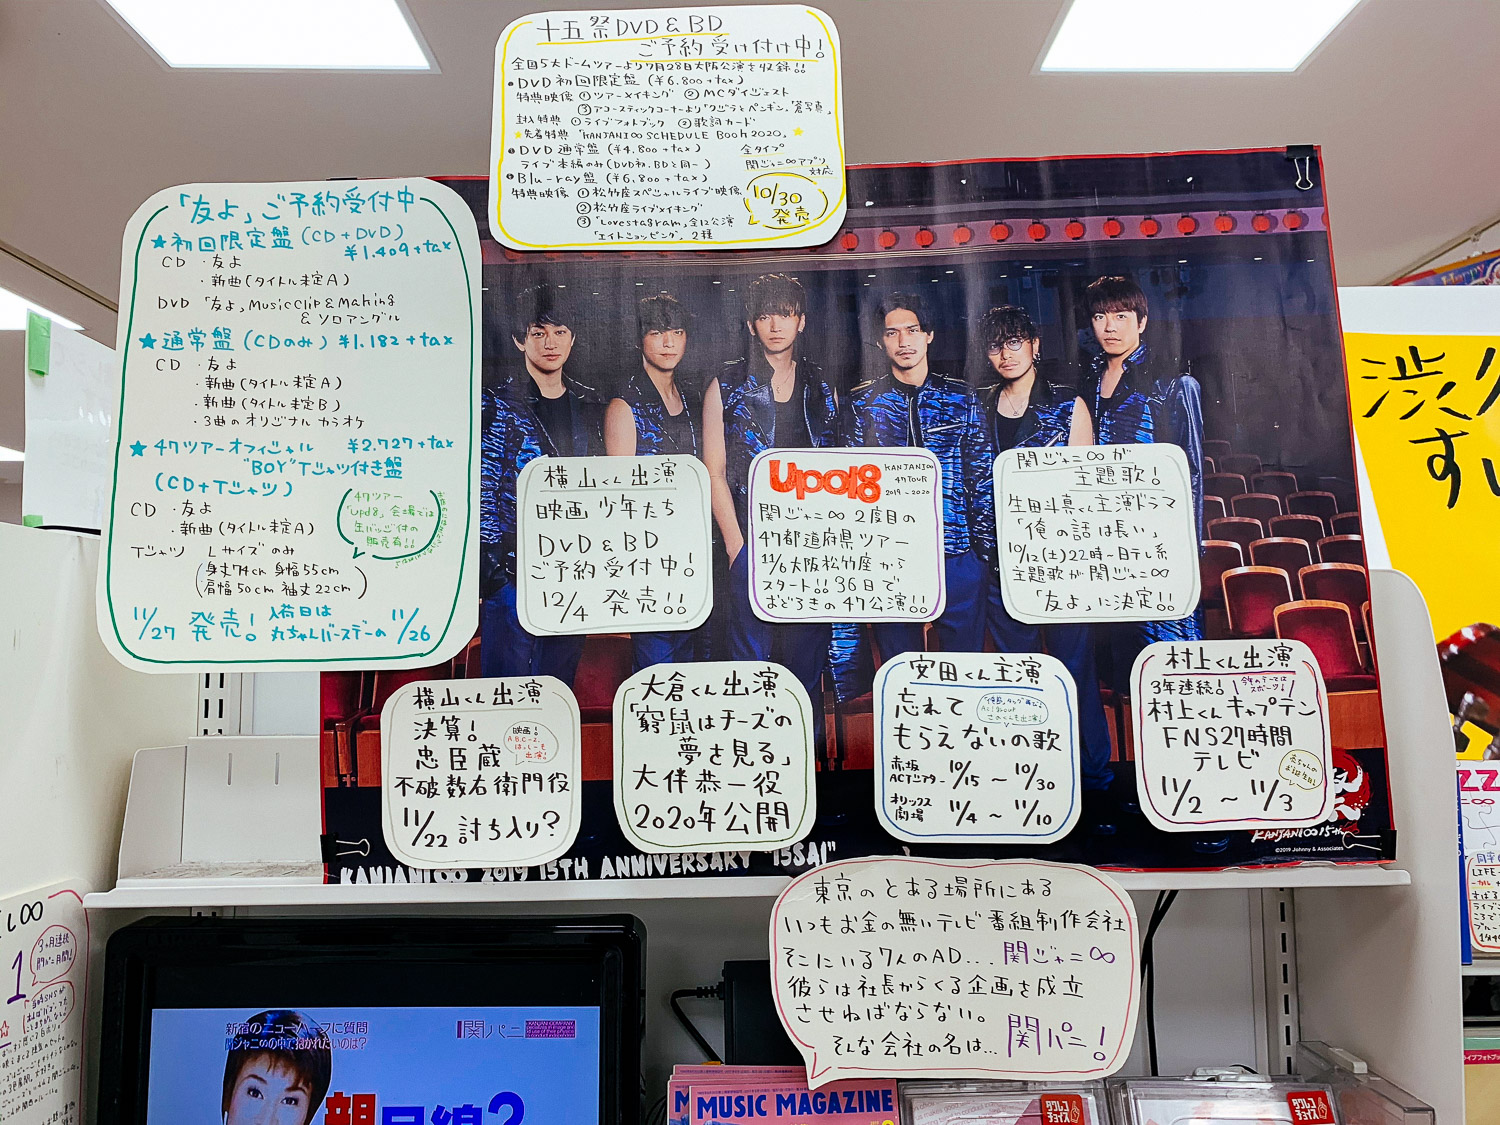 十五祭DVD&BD
ご予約受け付け中!
全国5大ドームツアーより7月28日大阪公演を収録!!
・DVD初回限定盤(¥6.800+tax)
特典映像 ①ツアーメイキング ②MCダイジェスト
③アコースティックコーナーより「クジラとペンギン」「蒼写真」
封入特典 ①ライブフォトブック ②歌詞カード
★先着特典「KANJANI∞ SCHEDULE Book 2020」★
・DVD通常盤(¥4.800+tax)
ライブ本編のみ(DVD初,BDと同一)
・Blu-ray盤(¥6.800+tax)
特典映像 ①松竹座スペシャルライブ映像
②松竹座ライブメイキング
③「Lovestagram」全12公演
「エイトショッピング」2種
全タイプ
関ジャニ∞アプリ
対応
10/30
発売
「友よ」ご予約受付中
★初回限定盤(CD+DVD)
¥1.409+tax
CD ・友よ
・新曲(タイトル未定A)
DVD 「友よ」Music Clip & Making
& ソロアングル
★通常盤(CDのみ)¥1.182+tax
CD ・友よ
・新曲(タイトル未定A)
・新曲(タイトル未定B)
・3曲のオリジナルカラオケ
★47ツアーオフィシャル ¥2.727+tax
"BOY"Tシャツ付き盤
(CD+Tシャツ)
CD ・友よ
・新曲(タイトル未定A)
Tシャツ Lサイズのみ
(身丈74cm 身幅55cm
肩幅50cm 袖丈22cm)
47ツアー
「Upd8」会場では
缶バッジ付の
販売有!!
11/27 発売! 入荷日は
丸ちゃんバースデーの 11/26
横山くん出演
映画 少年たち
DVD&BD
ご予約受付中!
12/4 発売!!
Upd8
KANJANI∞
47TOUR
2019~2020
関ジャニ∞2度目の
47都道府県ツアー
11/6大阪松竹座から
スタート!!36日で
おどろきの47公演!!
関ジャニ∞が
主題歌!
生田斗真くん主演ドラマ
「俺の話は長い」
10/12(土)22時~日テレ系
主題歌が関ジャニ∞
「友よ」に決定!!
横山くん出演
決算!
忠臣蔵
不破数右衛門役
11/22 討ち入り?
映画!
A.B.C-Z
はっしーも
出演!
大倉くん出演
「窮鼠はチーズの
夢を見る」
大伴恭一役
2020年公開
安田くん主演
忘れて
もらえないの歌
赤坂
ACTシアター 10/15 ~ 10/30
オリックス
劇場 11/4 ~ 11/10
村上くん出演
3年連続!
今年のテーマは
スポーツ!
村上くんキャプテン
FNS27時間
テレビ
11/2 ~ 11/3
KANJANI∞ 2019 15TH ANNIVERSARY "15SAI"
KANJANI∞15th
©2019 Johnny & Associates
東京のとある場所にある
いつもお金の無いテレビ番組制作会社
そこにいる7人のAD... 関ジャニ∞
彼らは社長からくる企画を成立
させねばならない。
そんな会社の名は... 関パニ!
新宿のニューハーフに質問
関ジャニ∞の中で抱かれたいのは?
関パニ
MUSIC MAGAZINE
タワレコ
チョイス
タワレコ
チョイス
3ヶ月連続
1
Happy
LIFE